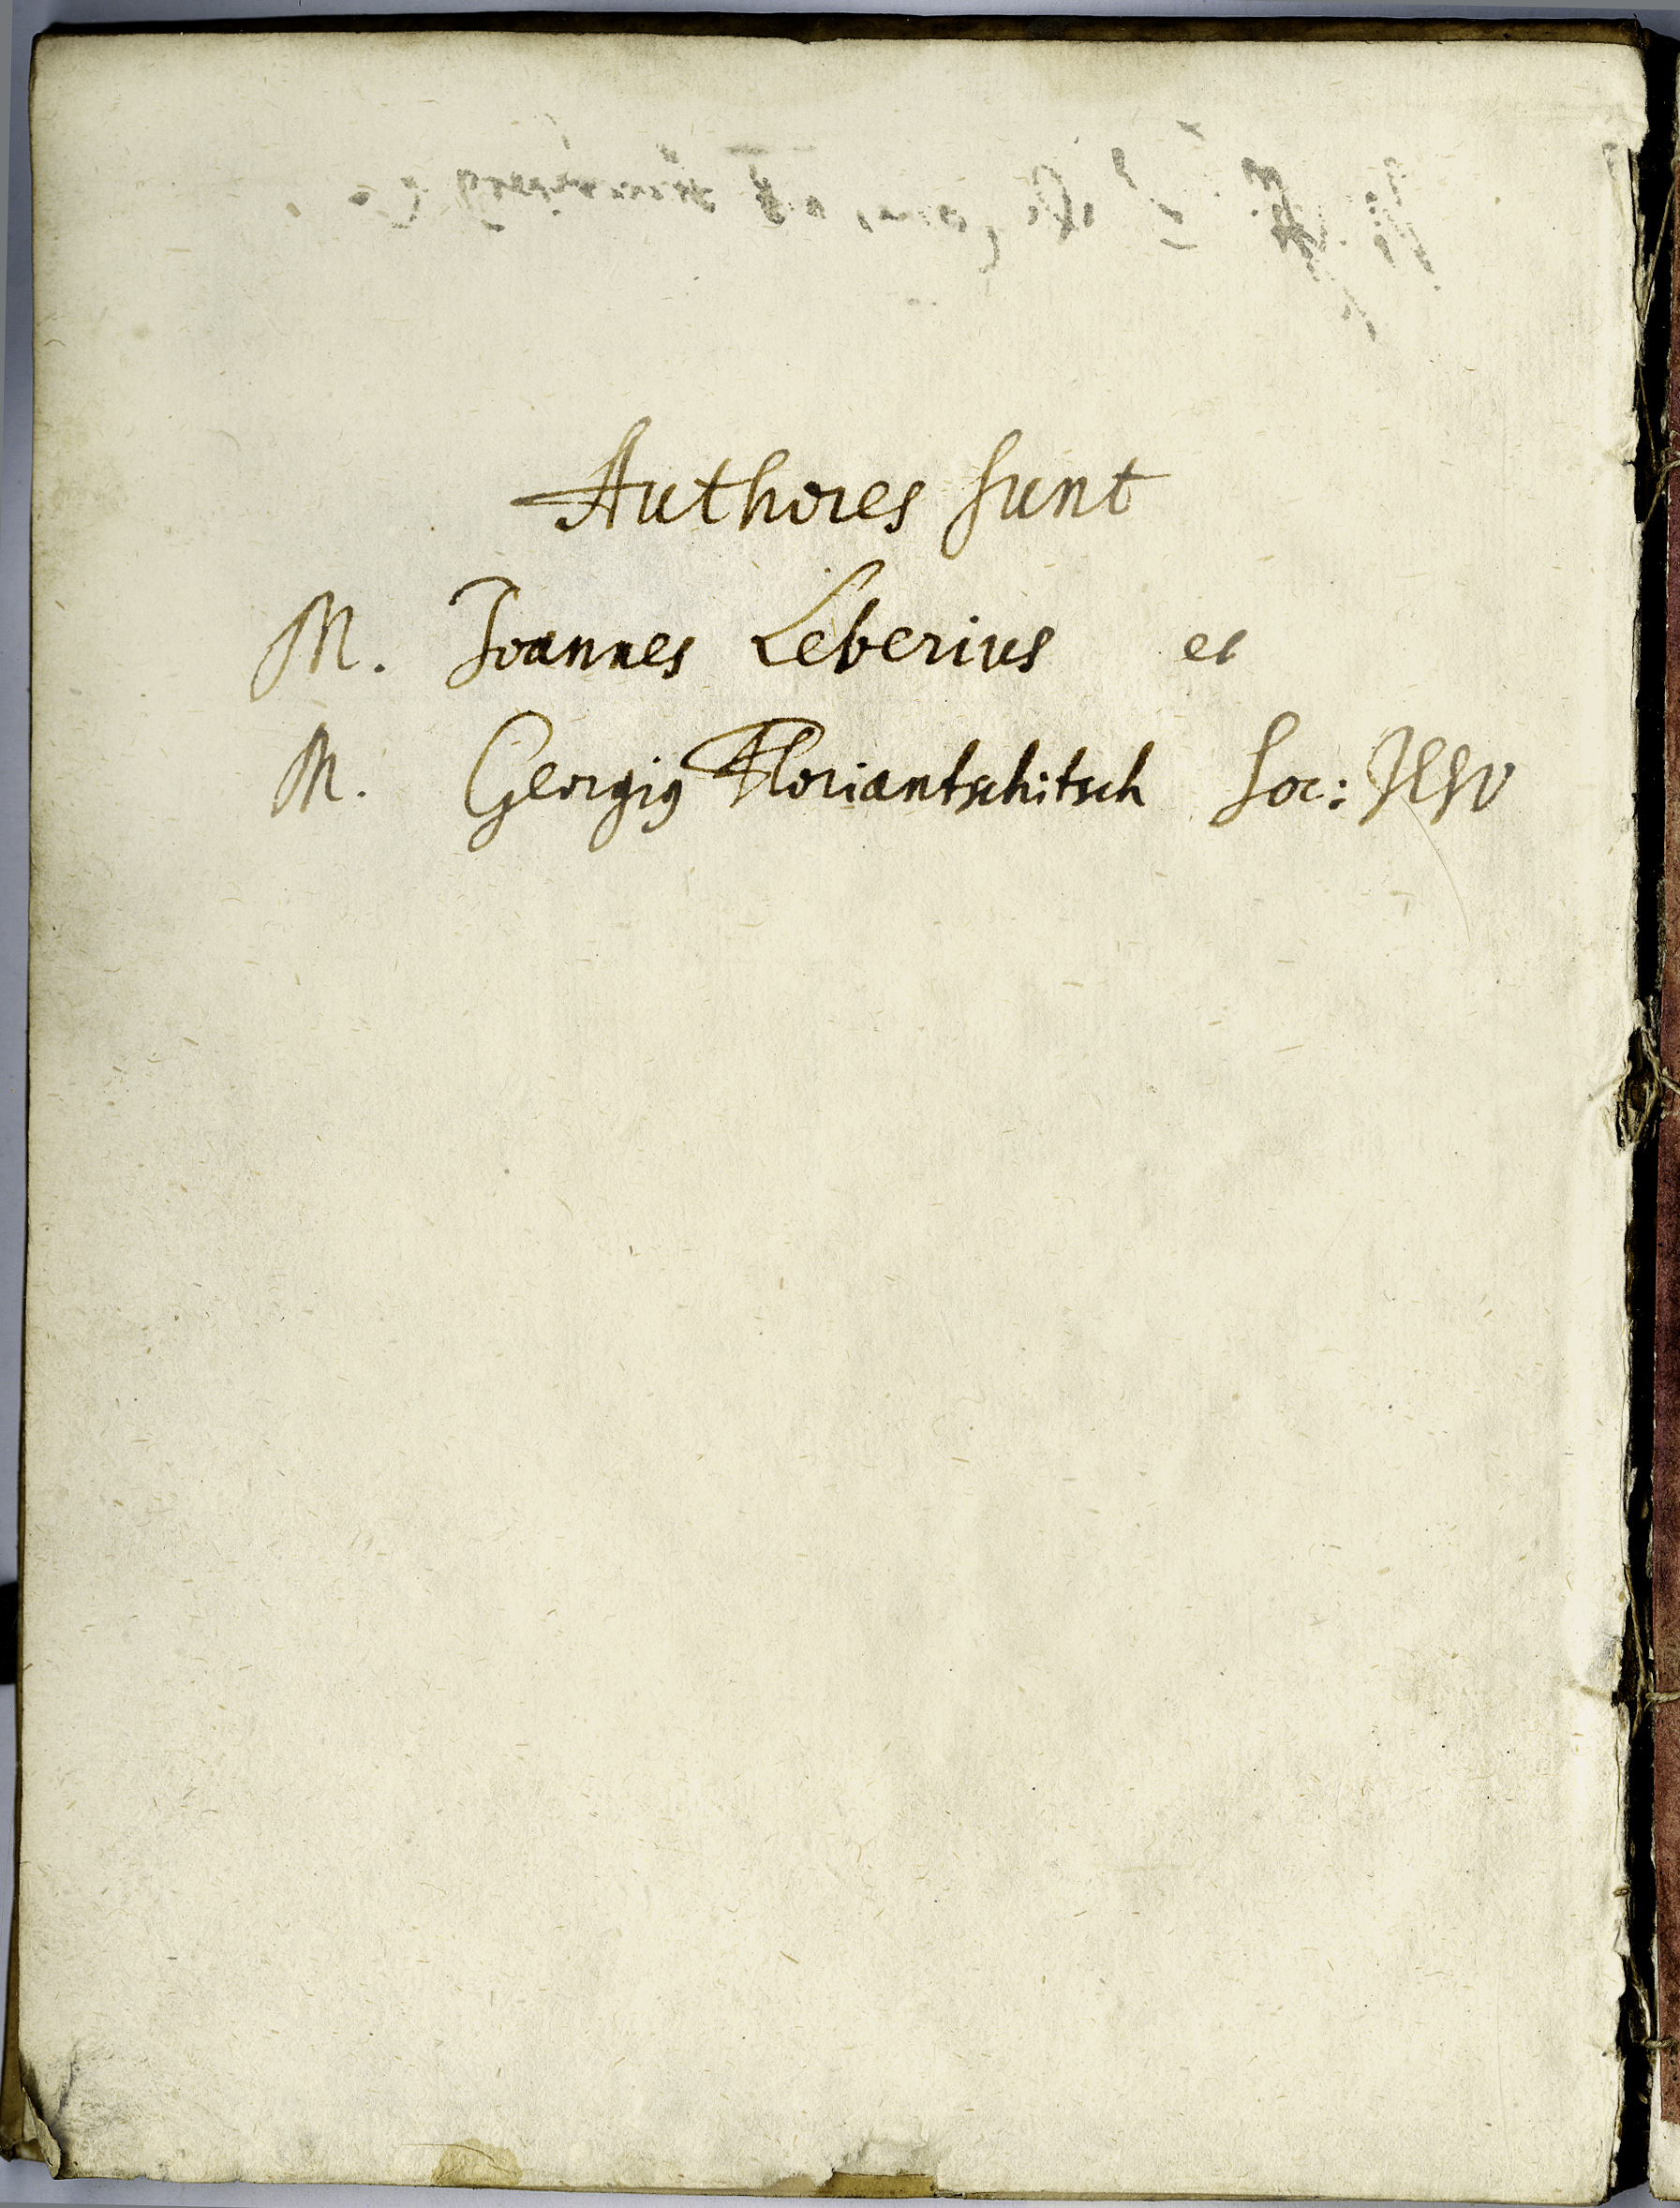 Authores sunt
M. Joannes Leberius et
M. Georgiꝰ Floriantschitsch Soc: JESV